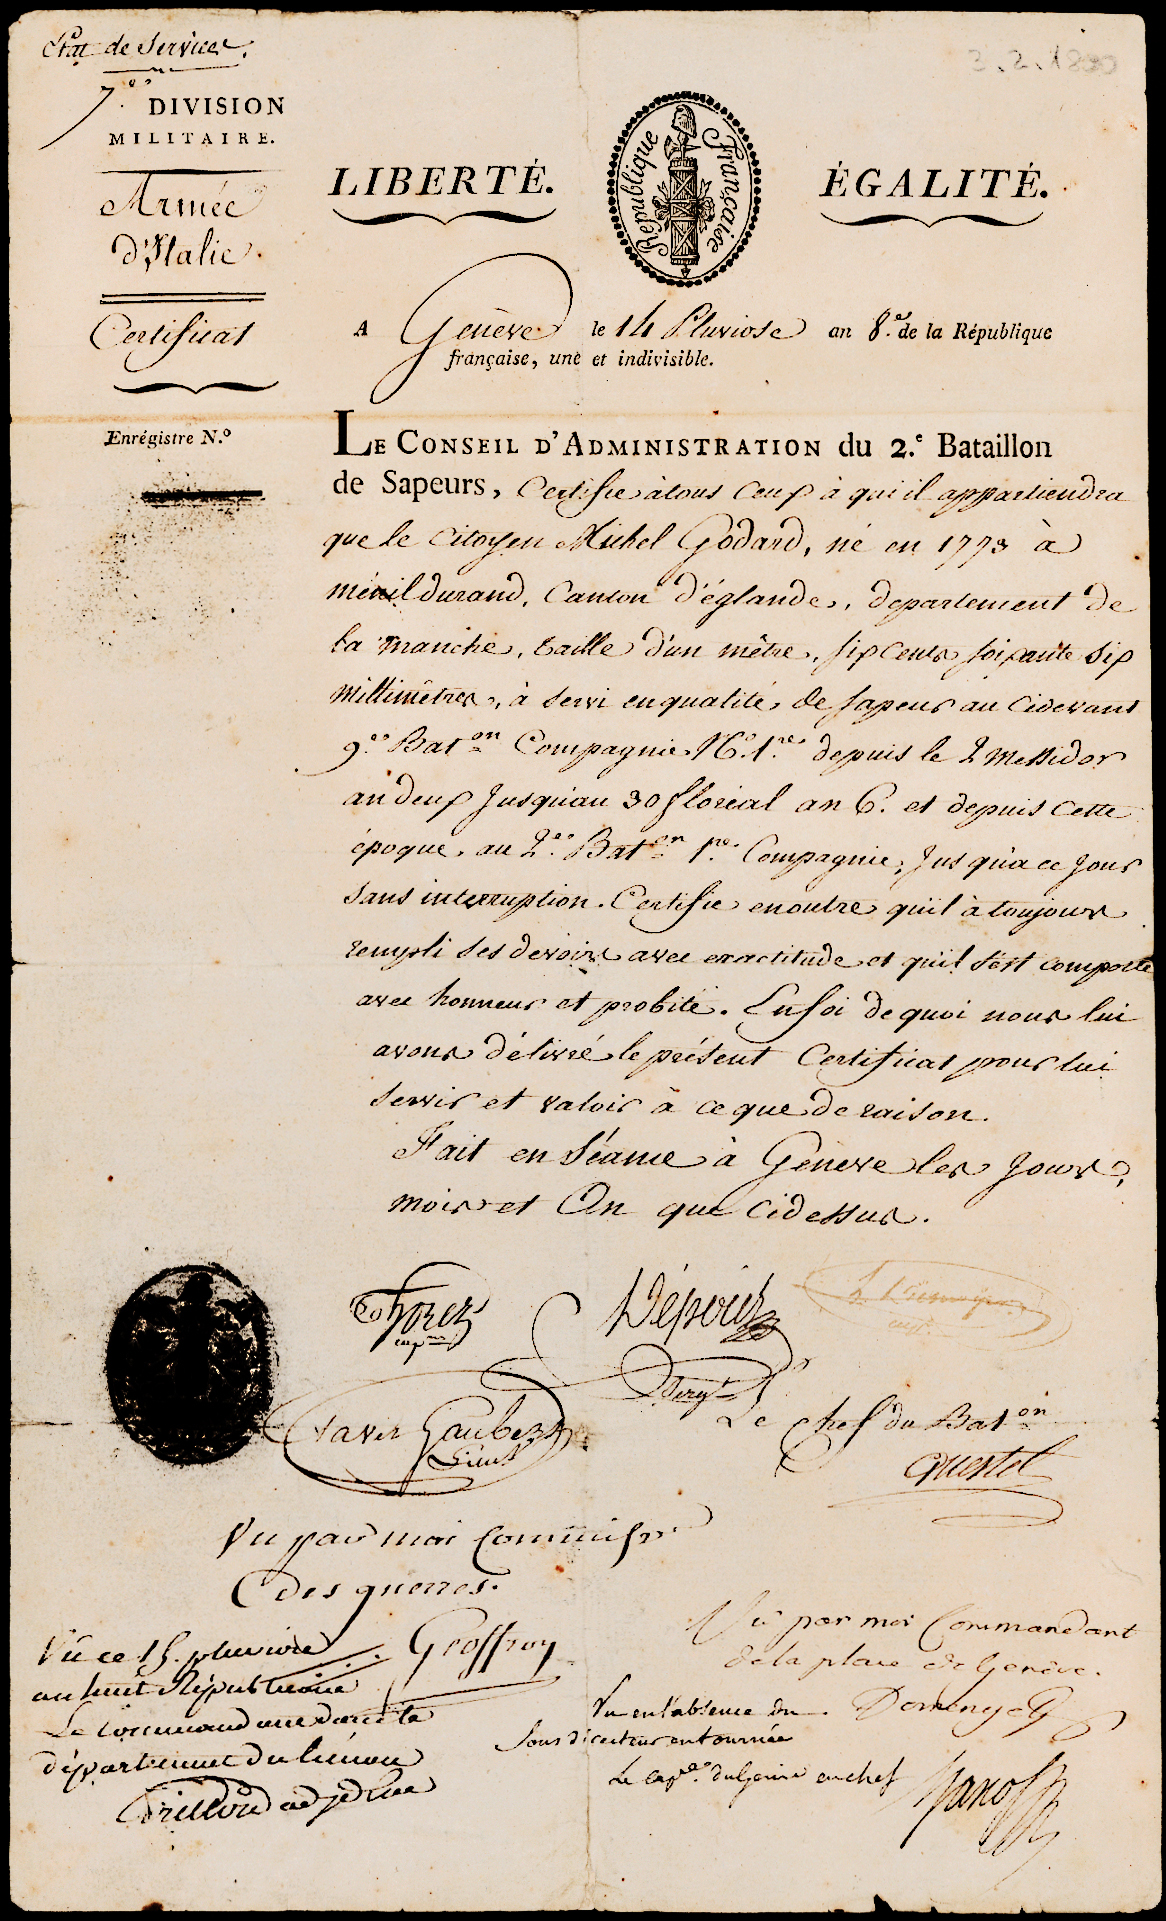 Etat de Services.
7.e DIVISION
MILITAIRE.
Armée
d'Italie.
Certificat
Enrégistre N.º
3.2.1800
LIBERTÉ.
République Française
ÉGALITÉ.
A Genêve le 14 Pluviose an 8.e de la République
française, une et indivisible.
LE CONSEIL D'ADMINISTRATION du 2.e Bataillon
de Sapeurs, Certifie à tous Ceux à qui il appartiendra
que le Citoyen Michel Godard, né en 1773 à
ménildurand, Canton d'églande, departement de
la manche, taille d'un mêtre, six Cents soixante six
millimêtres, à servi en qualité de sapeur au Cidevant
9.e Bat.on Compagnie N.º 1.re depuis le 2 Messidor
an deux Jusqu'au 30 floréal an 6. et depuis cette
époque, au 2.e Bat.on 1.re Compagnie, Jusqu'à ce Jour
sans interruption. Certifie en outre qu'il à toujours
rempli ses devoirs avec exactitude et qu'il s'est comporté
avec honneur et probité. En foi de quoi nous lui
avons délivré le présent Certificat pour lui
servir et valoir à ce que de raison.
Fait en Séance à Genêve les Jour,
mois et An que Cidessus.
Thorez
cap.ne
Dépériz
Serg.t
Xavier Gaubert
Lieut
Le Chef du Bat.on
Questel
Vu par moi Commiss.re
des guerres.
Geoffroy
Vû ce 15. pluviose
an huit Républicaine
Le commandant dans le
département du Léman
adjudt
Vu par moi Commandant
de la place de Genêve.
Vu en l'absence du
Sous directeur en tournée
Le Cap.ne du Génie en chef